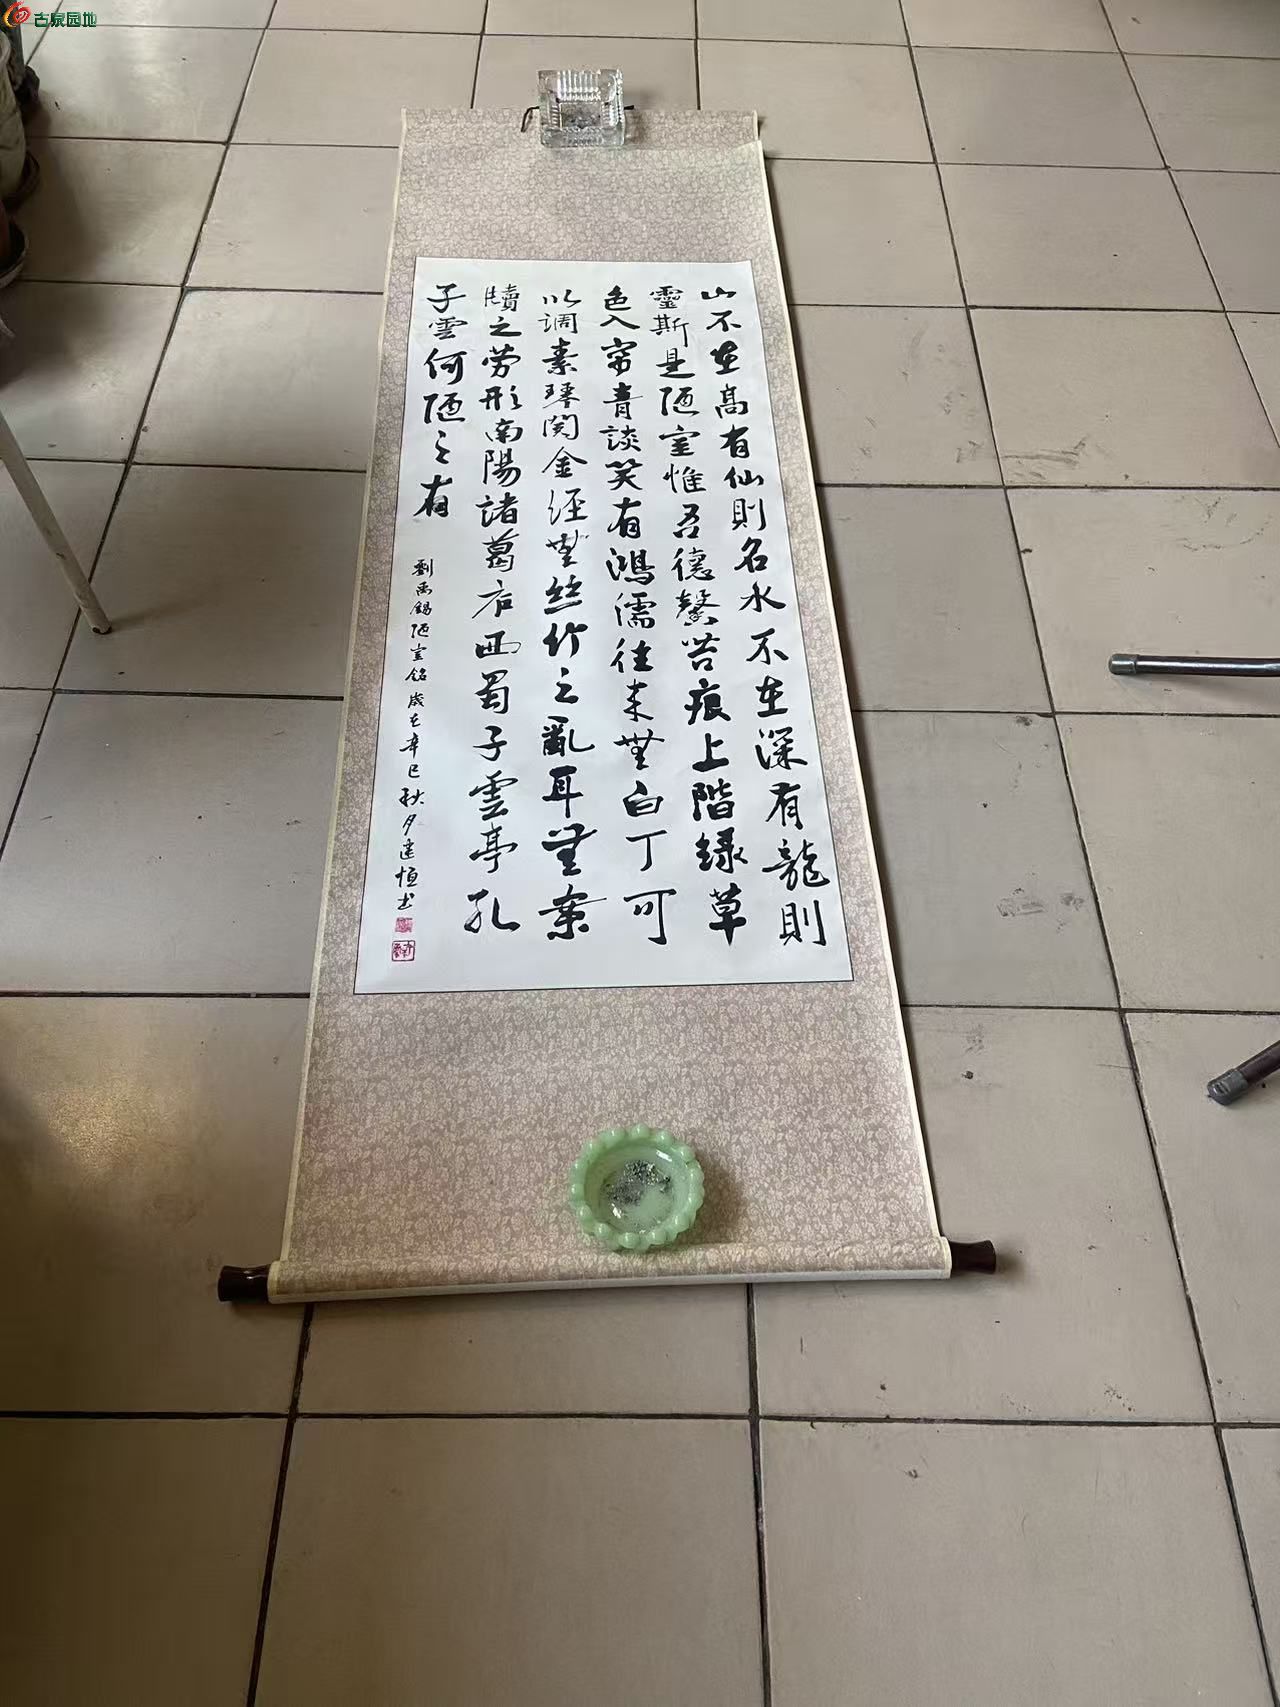 古泉园地
山不在高有仙則名水不在深有龍則
靈斯是陋室惟吾德馨苔痕上階緑草
色入帘青談笑有鴻儒往来無白丁可
以调素琴閱金經無絲竹之亂耳無案
牘之勞形南陽諸葛庐西蜀子雲亭孔
子雲何陋之有
劉禹錫陋室铭歲在辛巳秋月建恒书